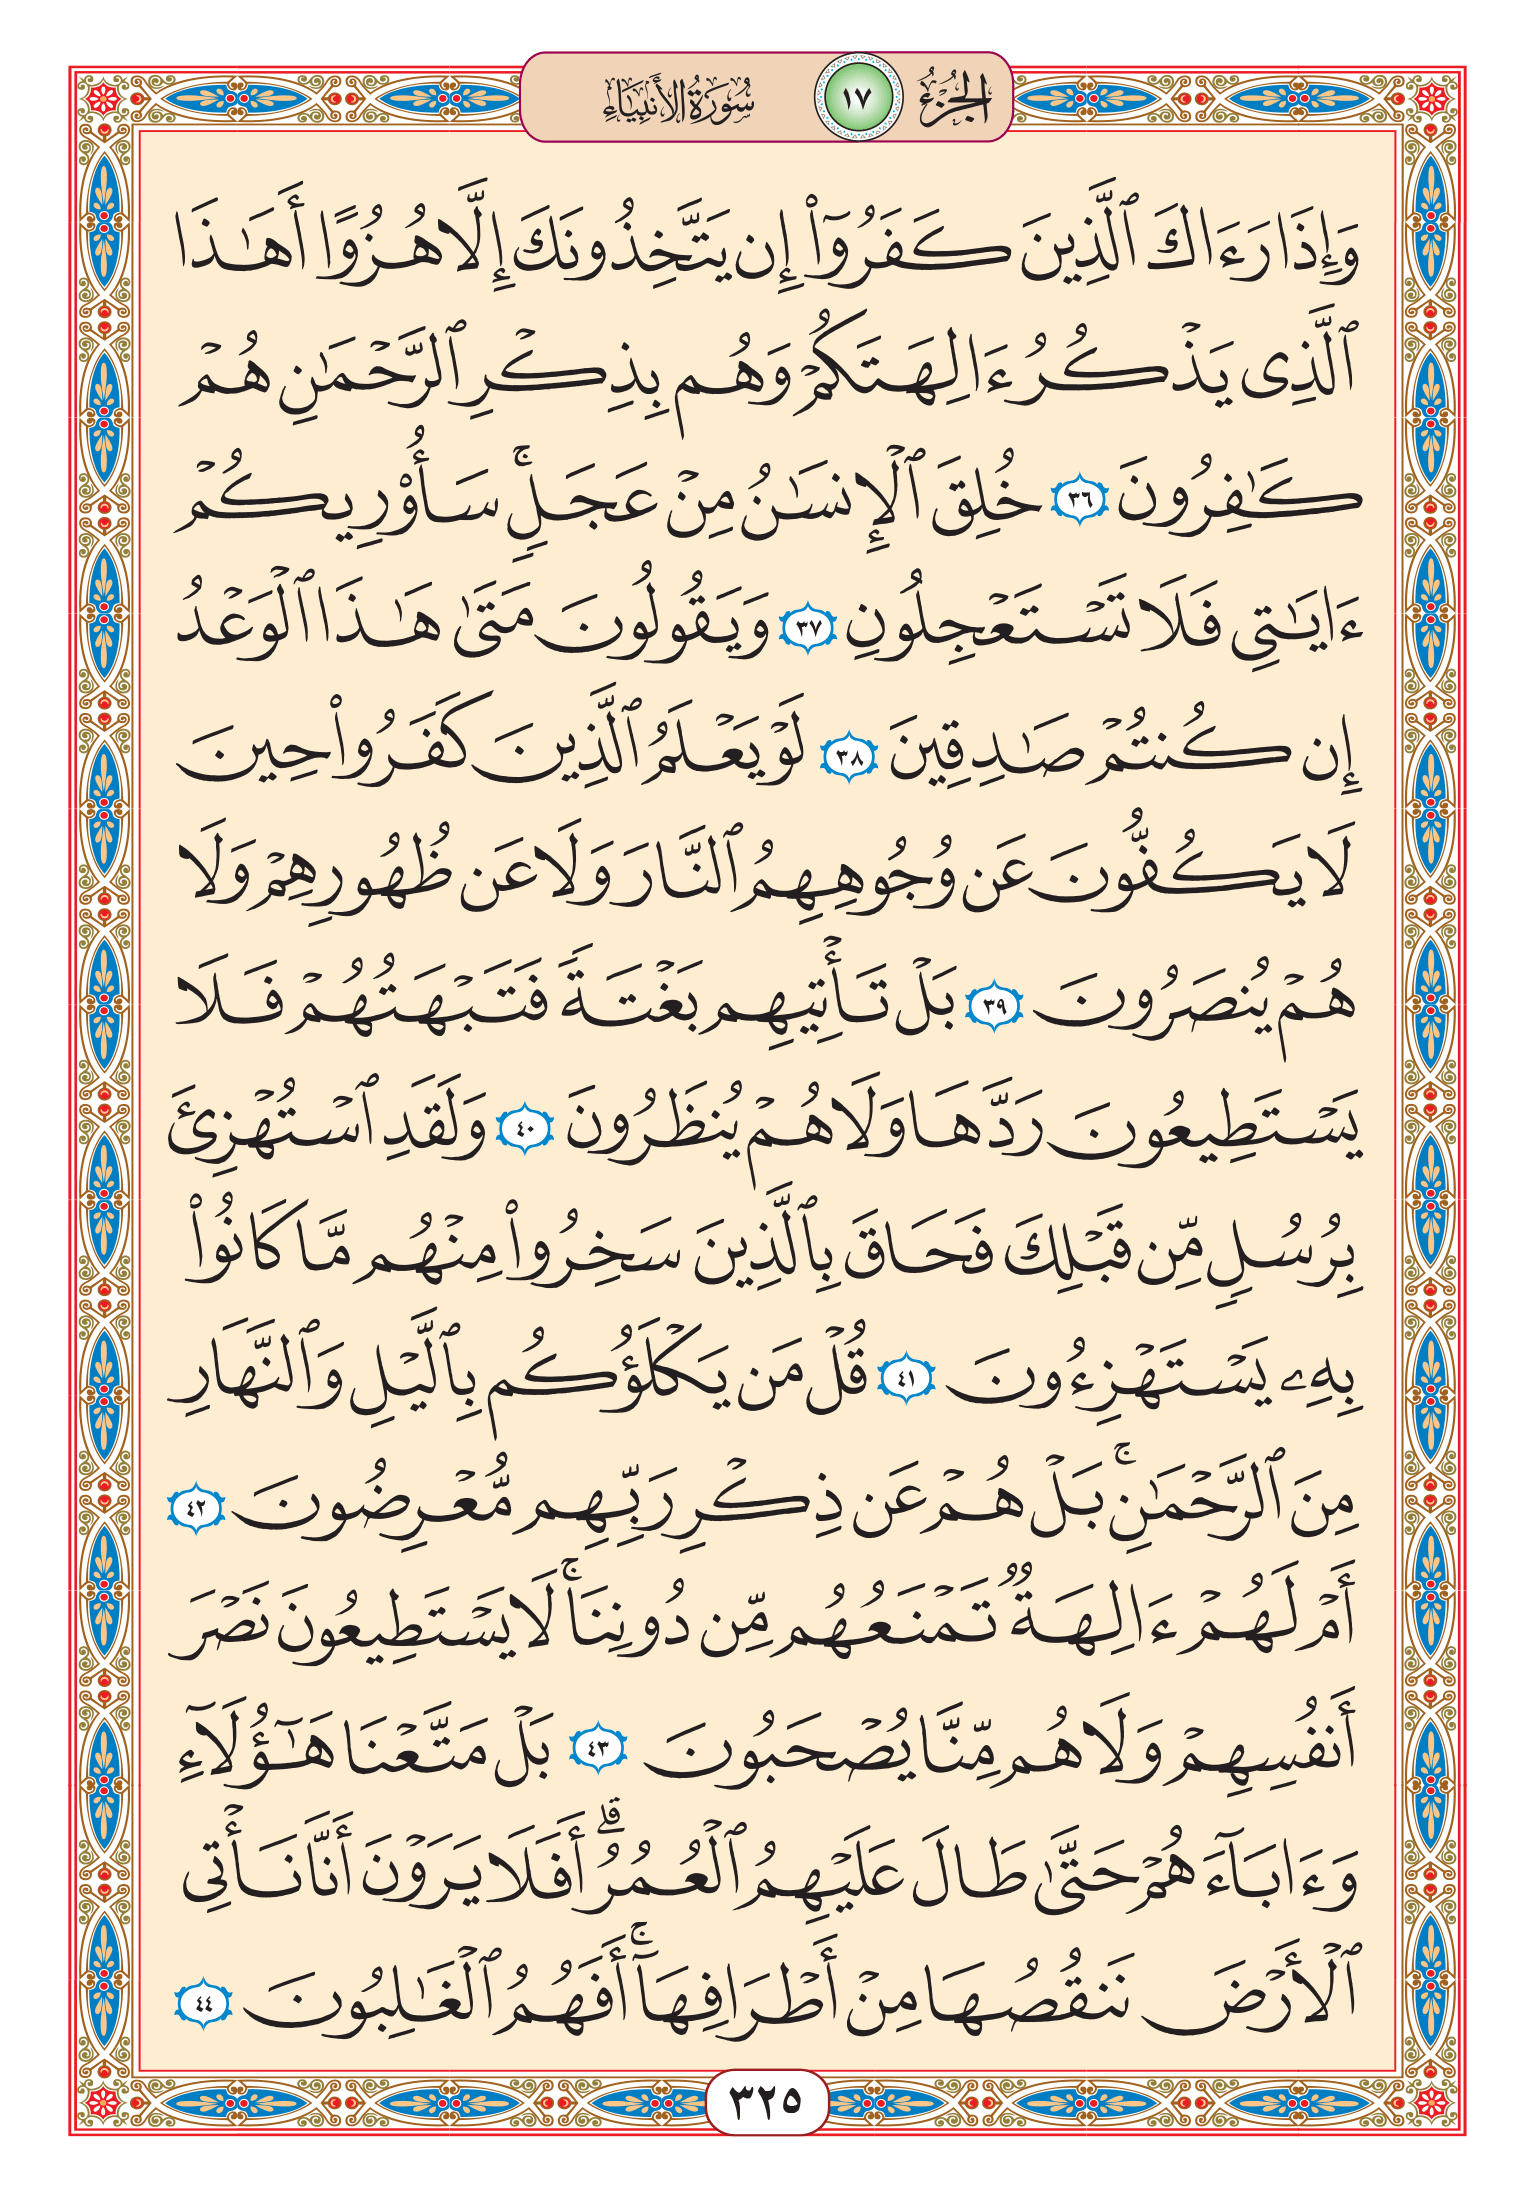 الجزء ١٧ سورة الأنبياء
وَإِذَا رَءَاكَ ٱلَّذِينَ كَفَرُوٓاْ إِن يَتَّخِذُونَكَ إِلَّا هُزُوًا أَهَٰذَا
ٱلَّذِى يَذْكُرُ ءَالِهَتَكُمْ وَهُم بِذِكْرِ ٱلرَّحْمَٰنِ هُمْ
كَٰفِرُونَ ٣٦ خُلِقَ ٱلْإِنسَٰنُ مِنْ عَجَلٍۚ سَأُوْرِيكُمْ
ءَايَٰتِى فَلَا تَسْتَعْجِلُونِ ٣٧ وَيَقُولُونَ مَتَىٰ هَٰذَا ٱلْوَعْدُ
إِن كُنتُمْ صَٰدِقِينَ ٣٨ لَوْ يَعْلَمُ ٱلَّذِينَ كَفَرُواْ حِينَ
لَا يَكُفُّونَ عَن وُجُوهِهِمُ ٱلنَّارَ وَلَا عَن ظُهُورِهِمْ وَلَا
هُمْ يُنصَرُونَ ٣٩ بَلْ تَأْتِيهِم بَغْتَةً فَتَبْهَتُهُمْ فَلَا
يَسْتَطِيعُونَ رَدَّهَا وَلَا هُمْ يُنظَرُونَ ٤٠ وَلَقَدِ ٱسْتُهْزِئَ
بِرُسُلٍ مِّن قَبْلِكَ فَحَاقَ بِٱلَّذِينَ سَخِرُواْ مِنْهُم مَّا كَانُواْ
بِهِۦ يَسْتَهْزِءُونَ ٤١ قُلْ مَن يَكْلَؤُكُم بِٱلَّيْلِ وَٱلنَّهَارِ
مِنَ ٱلرَّحْمَٰنِۚ بَلْ هُمْ عَن ذِكْرِ رَبِّهِم مُّعْرِضُونَ ٤٢
أَمْ لَهُمْ ءَالِهَةٌ تَمْنَعُهُم مِّن دُونِنَاۚ لَا يَسْتَطِيعُونَ نَصْرَ
أَنفُسِهِمْ وَلَا هُم مِّنَّا يُصْحَبُونَ ٤٣ بَلْ مَتَّعْنَا هَٰٓؤُلَآءِ
وَءَابَآءَهُمْ حَتَّىٰ طَالَ عَلَيْهِمُ ٱلْعُمُرُۗ أَفَلَا يَرَوْنَ أَنَّا نَأْتِى
ٱلْأَرْضَ نَنقُصُهَا مِنْ أَطْرَافِهَآۚ أَفَهُمُ ٱلْغَٰلِبُونَ ٤٤
٣٢٥